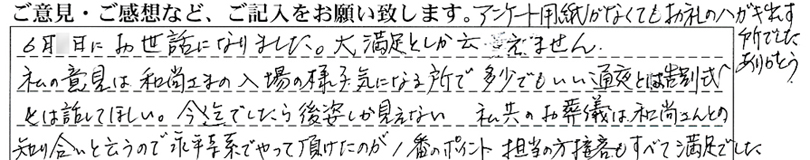 ご意見・ご感想など、ご記入をお願い致します。アンケート用紙がなくてもお礼のハガキ出す
所でした
ありがとう
6月 日にお世話になりました。大満足としか云えません。
私の意見は和尚さまの入場の様子気になる所で多少でもいい通夜とは告別式へ
とは話してほしい。今迄でしたら後姿しか見えない 私共のお葬儀は和尚さんとの
知り合いと云うので永平寺系でやって頂けたのが1番のポイント 担当の方接客もすべて満足でした